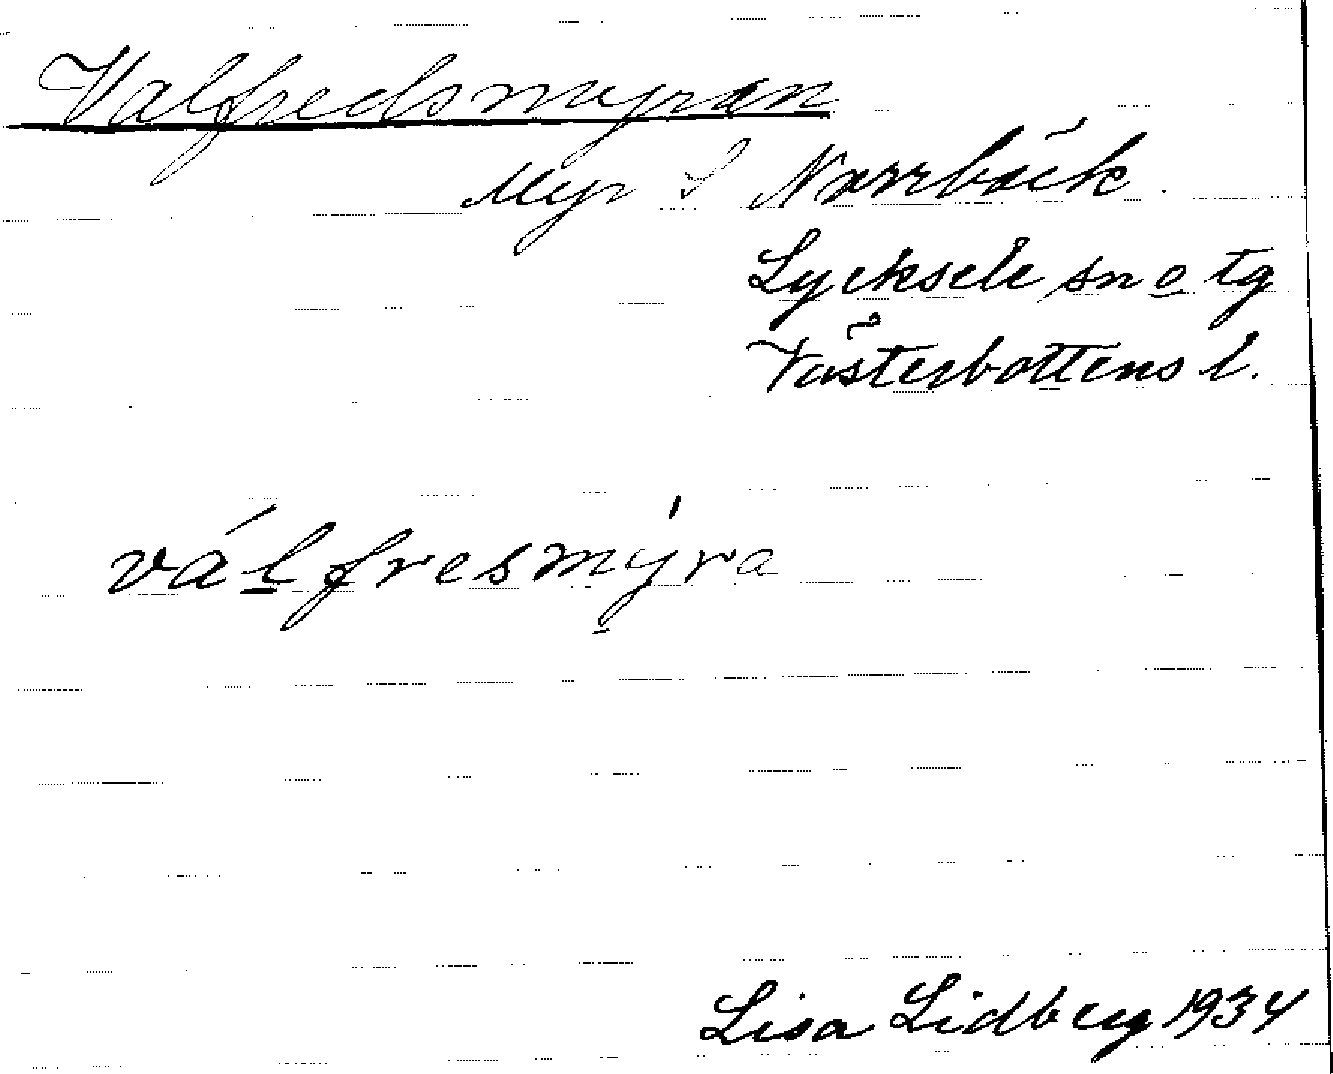 Valfredsmyran
Myr i Norrbäck.
Lycksele sn o tg
Västerbottens l.
válfresmýra
Lisa Lidberg 1934